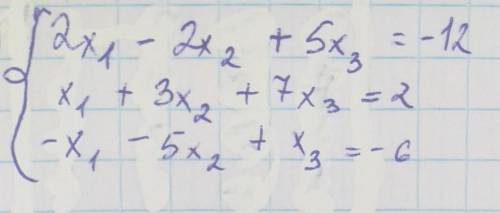 2x₁ - 2x₂ + 5x₃ = -12
x₁ + 3x₂ + 7x₃ = 2
-x₁ - 5x₂ + x₃ = -6